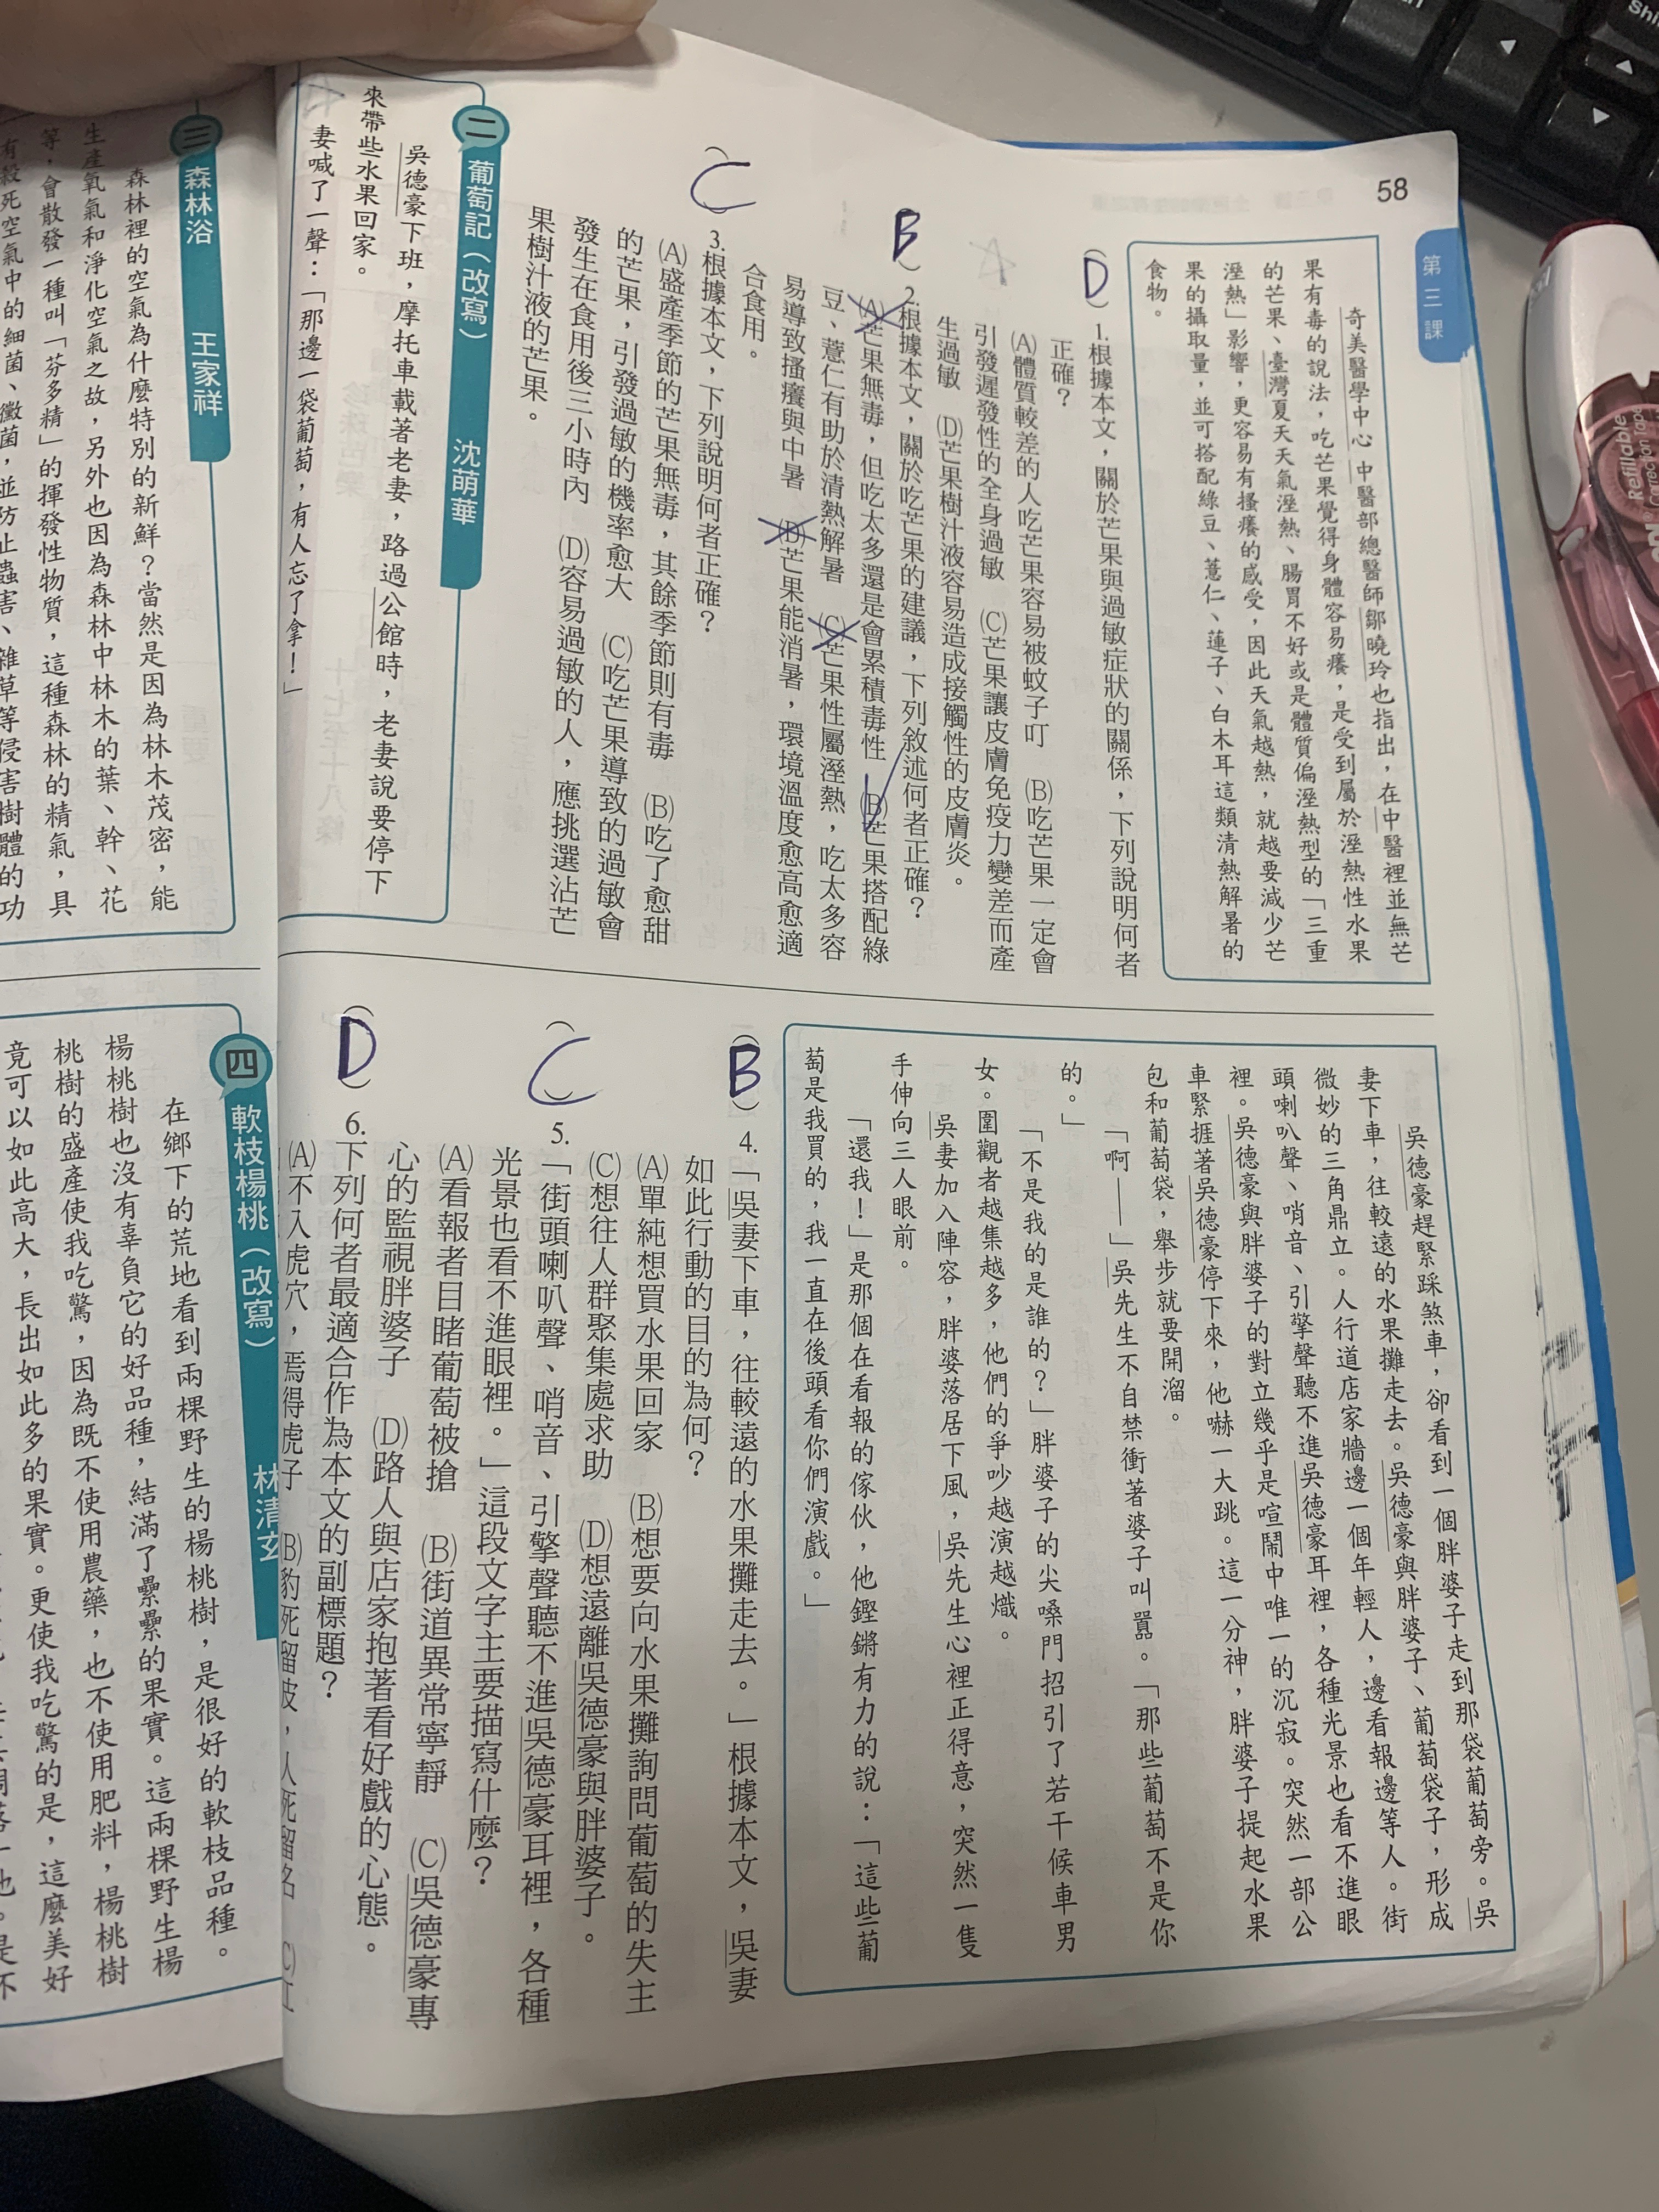 58
第三課
奇美醫學中心 中醫部總醫師鄒曉玲也指出，在中醫裡並無芒
果有毒的說法，吃芒果覺得身體容易癢，是受到屬於溼熱性水果
的芒果、臺灣夏天天氣溼熱、腸胃不好或是體質偏溼熱型的「三重
溼熱」影響，更容易有搔癢的感受，因此天氣越熱，就越要減少芒
果的攝取量，並可搭配綠豆、薏仁、蓮子、白木耳這類清熱解暑的
食物。
(D)1.根據本文，關於芒果與過敏症狀的關係，下列說明何者
正確？
(A)體質較差的人吃芒果容易被蚊子叮 (B)吃芒果一定會
引發遲發性的全身過敏 (C)芒果讓皮膚免疫力變差而產
生過敏 (D)芒果樹汁液容易造成接觸性的皮膚炎。
B)2.根據本文，關於吃芒果的建議，下列敘述何者正確？
(A)芒果無毒，但吃太多還是會累積毒性 (B)芒果搭配綠
豆、薏仁有助於清熱解暑 (C)芒果性屬溼熱，吃太多容
易導致搔癢與中暑 (D)芒果能消暑，環境溫度愈高愈適
合食用。
(C)3.根據本文，下列說明何者正確？
(A)盛產季節的芒果無毒，其餘季節則有毒 (B)吃了愈甜
的芒果，引發過敏的機率愈大 (C)吃芒果導致的過敏會
發生在食用後三小時內 (D)容易過敏的人，應挑選沾芒
果樹汁液的芒果。
二 葡萄記（改寫） 沈萌華
吳德豪下班，摩托車載著老妻，路過公館時，老妻說要停下
來帶些水果回家。
妻喊了一聲：「那邊一袋葡萄，有人忘了拿！」
吳德豪趕緊踩煞車，卻看到一個胖婆子走到那袋葡萄旁。吳
妻下車，往較遠的水果攤走去。吳德豪與胖婆子、葡萄袋子，形成
微妙的三角鼎立。人行道店家牆邊一個年輕人，邊看報邊等人。街
頭喇叭聲、哨音、引擎聲聽不進吳德豪耳裡，各種光景也看不進眼
裡。吳德豪與胖婆子的對立幾乎是喧鬧中唯一的沉寂。突然一部公
車緊捱著吳德豪停下來，他嚇一大跳。這一分神，胖婆子提起水果
包和葡萄袋，舉步就要開溜。
「啊——」吳先生不自禁衝著婆子叫囂。「那些葡萄不是你
的。」
「不是我的是誰的？」胖婆子的尖嗓門招引了若干候車男
女。圍觀者越集越多，他們的爭吵越演越熾。
吳妻加入陣容，胖婆落居下風，吳先生心裡正得意，突然一隻
手伸向三人眼前。
「還我！」是那個在看報的傢伙，他鏗鏘有力的說：「這些葡
萄是我買的，我一直在後頭看你們演戲。」
(B)4.「吳妻下車，往較遠的水果攤走去。」根據本文，吳妻
如此行動的目的為何？
(A)單純想買水果回家 (B)想要向水果攤詢問葡萄的失主
(C)想往人群聚集處求助 (D)想遠離吳德豪與胖婆子。
(C)5.「街頭喇叭聲、哨音、引擎聲聽不進吳德豪耳裡，各種
光景也看不進眼裡。」這段文字主要描寫什麼？
(A)看報者目睹葡萄被搶 (B)街道異常寧靜 (C)吳德豪專
心的監視胖婆子 (D)路人與店家抱著看好戲的心態。
(D)6.下列何者最適合作為本文的副標題？
(A)不入虎穴，焉得虎子 (B)豹死留皮，人死留名 (C)
三 森林浴 王家祥
森林裡的空氣為什麼特別的新鮮？當然是因為林木茂密，能
生產氧氣和淨化空氣之故，另外也因為森林中林木的葉、幹、花
等，會散發一種叫「芬多精」的揮發性物質，這種森林的精氣，具
有殺死空氣中的細菌、黴菌，並防止蟲害、雜草等侵害樹體的功
四 軟枝楊桃（改寫） 林清玄
在鄉下的荒地看到兩棵野生的楊桃樹，是很好的軟枝品種。
楊桃樹也沒有辜負它的好品種，結滿了纍纍的果實。這兩棵野生楊
桃樹的盛產使我吃驚，因為既不使用農藥，也不使用肥料，楊桃樹
竟可以如此高大，長出如此多的果實。更使我吃驚的是，這麼美好